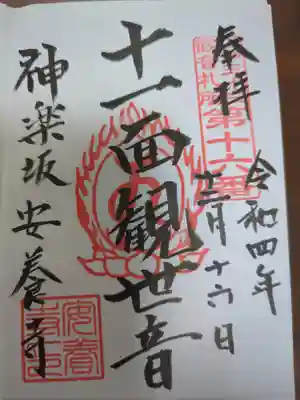 奉拝
第十六番
令和四年
十二月十六日
十一面観世音
神楽坂安養寺